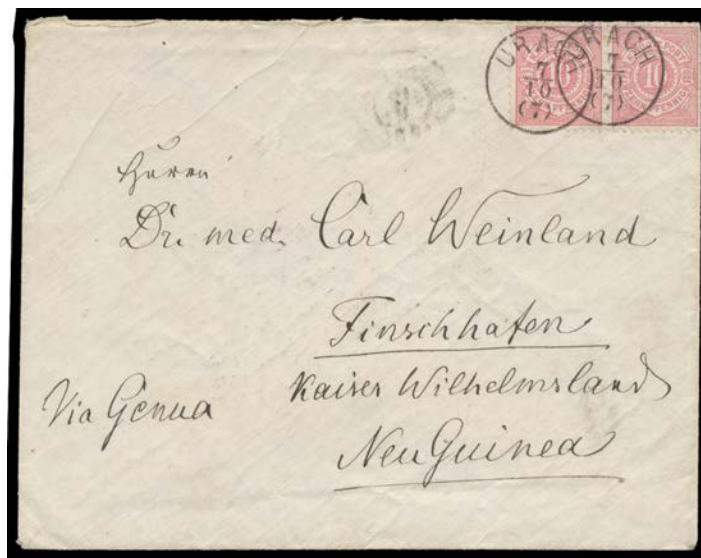 URACH
7
10
(7)
URACH
7
10
(7)
10
Herrn
Dr. med. Carl Weinland
Finschhafen
Kaiser Wilhelmsland
Via Genua
Neu Guinea